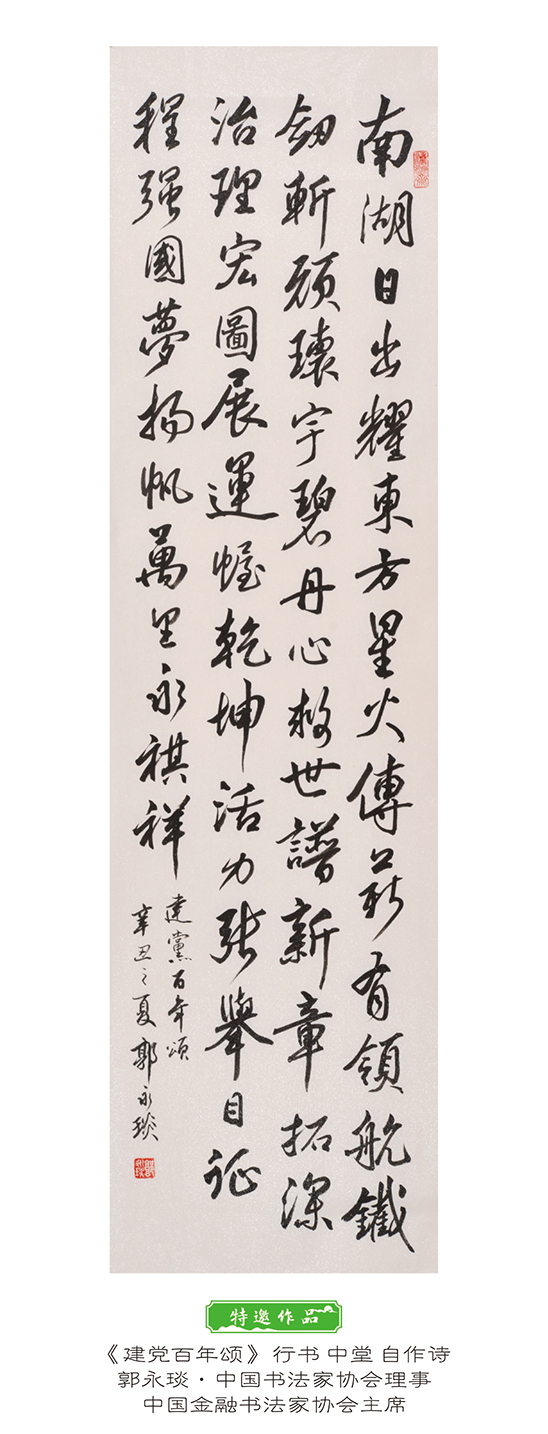 南湖日出耀東方星火傳薪有領航鐵
劒斬頑瓌宇碧丹心救世譜新章拓深
治理宏圖展運幄乾坤活力張舉目征
程强國夢揚帆萬里永祺祥
建黨百年頌
辛丑之夏郭永琰
特邀作品
《建党百年颂》行书 中堂 自作诗
郭永琰·中国书法家协会理事
中国金融书法家协会主席